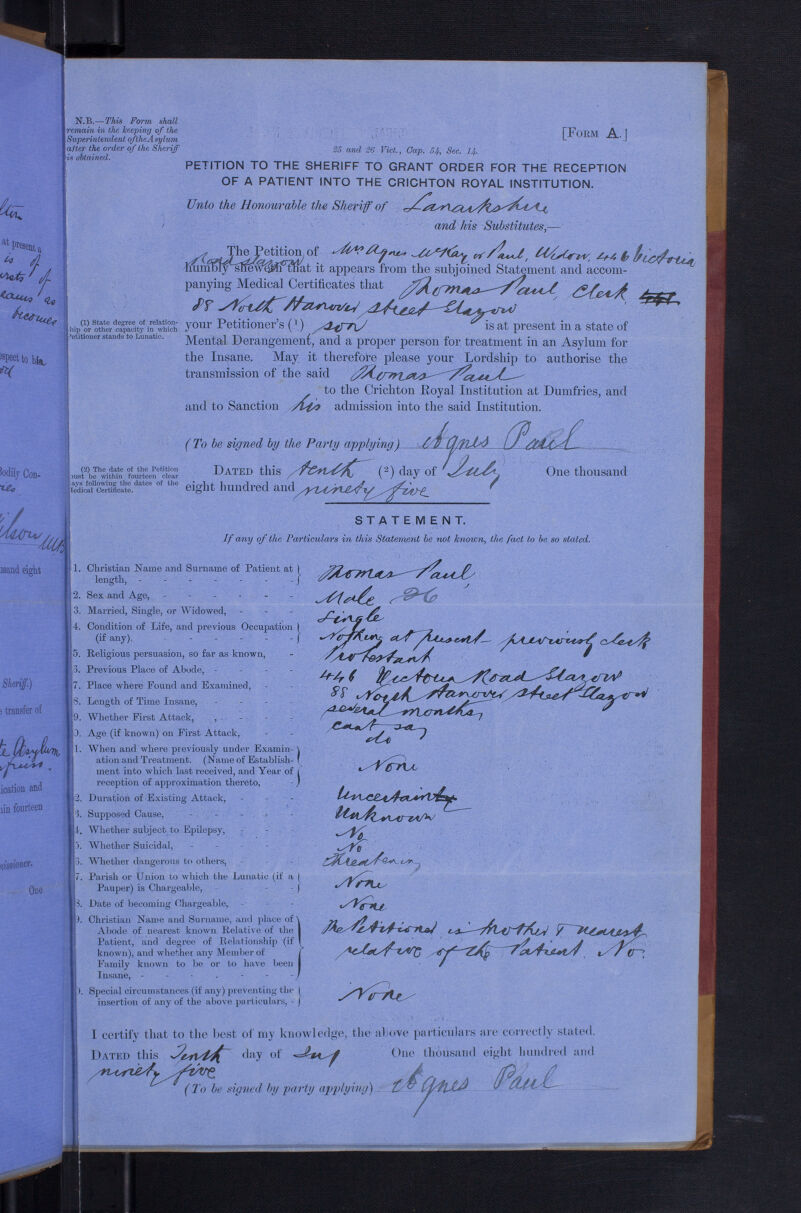 N.B.—This Form shall
remain in the keeping of the
Superintendent of the Asylum
after the order of the Sheriff
is obtained.
[FORM A.]
25 and 26 Vict., Cap. 54, Sec. 14.
PETITION TO THE SHERIFF TO GRANT ORDER FOR THE RECEPTION
OF A PATIENT INTO THE CRICHTON ROYAL INSTITUTION.
Unto the Honourable the Sheriff of Lanarkshire
and his Substitutes,—
The Petition of Mrs Agnes McKay or Paul, Widow, 446 Victoria
Road Glasgow
humbly sheweth that it appears from the subjoined Statement and accom-
panying Medical Certificates that Thomas Paul, Clerk
88 North Hanover Street Glasgow
(1) State degree of relation-
ship or other capacity in which
Petitioner stands to Lunatic.
your Petitioner's (1) son is at present in a state of
Mental Derangement, and a proper person for treatment in an Asylum for
the Insane. May it therefore please your Lordship to authorise the
transmission of the said Thomas Paul
to the Crichton Royal Institution at Dumfries, and
and to Sanction his admission into the said Institution.
(To be signed by the Party applying) Agnes Paul
(2) The date of the Petition
must be within fourteen clear
days following the dates of the
Medical Certificate.
DATED this tenth (2) day of July One thousand
eight hundred and ninety five
STATEMENT.
If any of the Particulars in this Statement be not known, the fact to be so stated.
1. Christian Name and Surname of Patient at
length, - Thomas Paul
2. Sex and Age, - Male 26
3. Married, Single, or Widowed, - Single
4. Condition of Life, and previous Occupation
(if any). - Nothing at present - previously clerk
5. Religious persuasion, so far as known, - Protestant
6. Previous Place of Abode, - 446 Victoria Road Glasgow
7. Place where Found and Examined, - 88 North Hanover Street Glasgow
8. Length of Time Insane, - several months
9. Whether First Attack, - cant say
0. Age (if known) on First Attack, - do
1. When and where previously under Examin-
ation and Treatment. (Name of Establish-
ment into which last received, and Year of
reception of approximation thereto, - None
2. Duration of Existing Attack, - Uncertain
3. Supposed Cause, - Unknown
4. Whether subject to Epilepsy, - No
5. Whether Suicidal, - No
6. Whether dangerous to others, - Threatening
7. Parish or Union to which the Lunatic (if a
Pauper) is Chargeable, - None
8. Date of becoming Chargeable, - None
9. Christian Name and Surname, and place of
Abode of nearest known Relative of the
Patient, and degree of Relationship (if
known), and whether any Member of
Family known to be or to have been
Insane, - The Petitioner is Mother & nearest
relative of the Patient. No.
0. Special circumstances (if any) preventing the
insertion of any of the above particulars, - None
I certify that to the best of my knowledge, the above particulars are correctly stated.
DATED this Tenth day of July One thousand eight hundred and
ninety five
(To be signed by party applying) Agnes Paul
at present a
is of
becomes
respect to his
Bodily Con-
Wilson MB
sand eight
Sheriff.)
transfer of
Asylum
ication and
in fourteen
missioner.
One